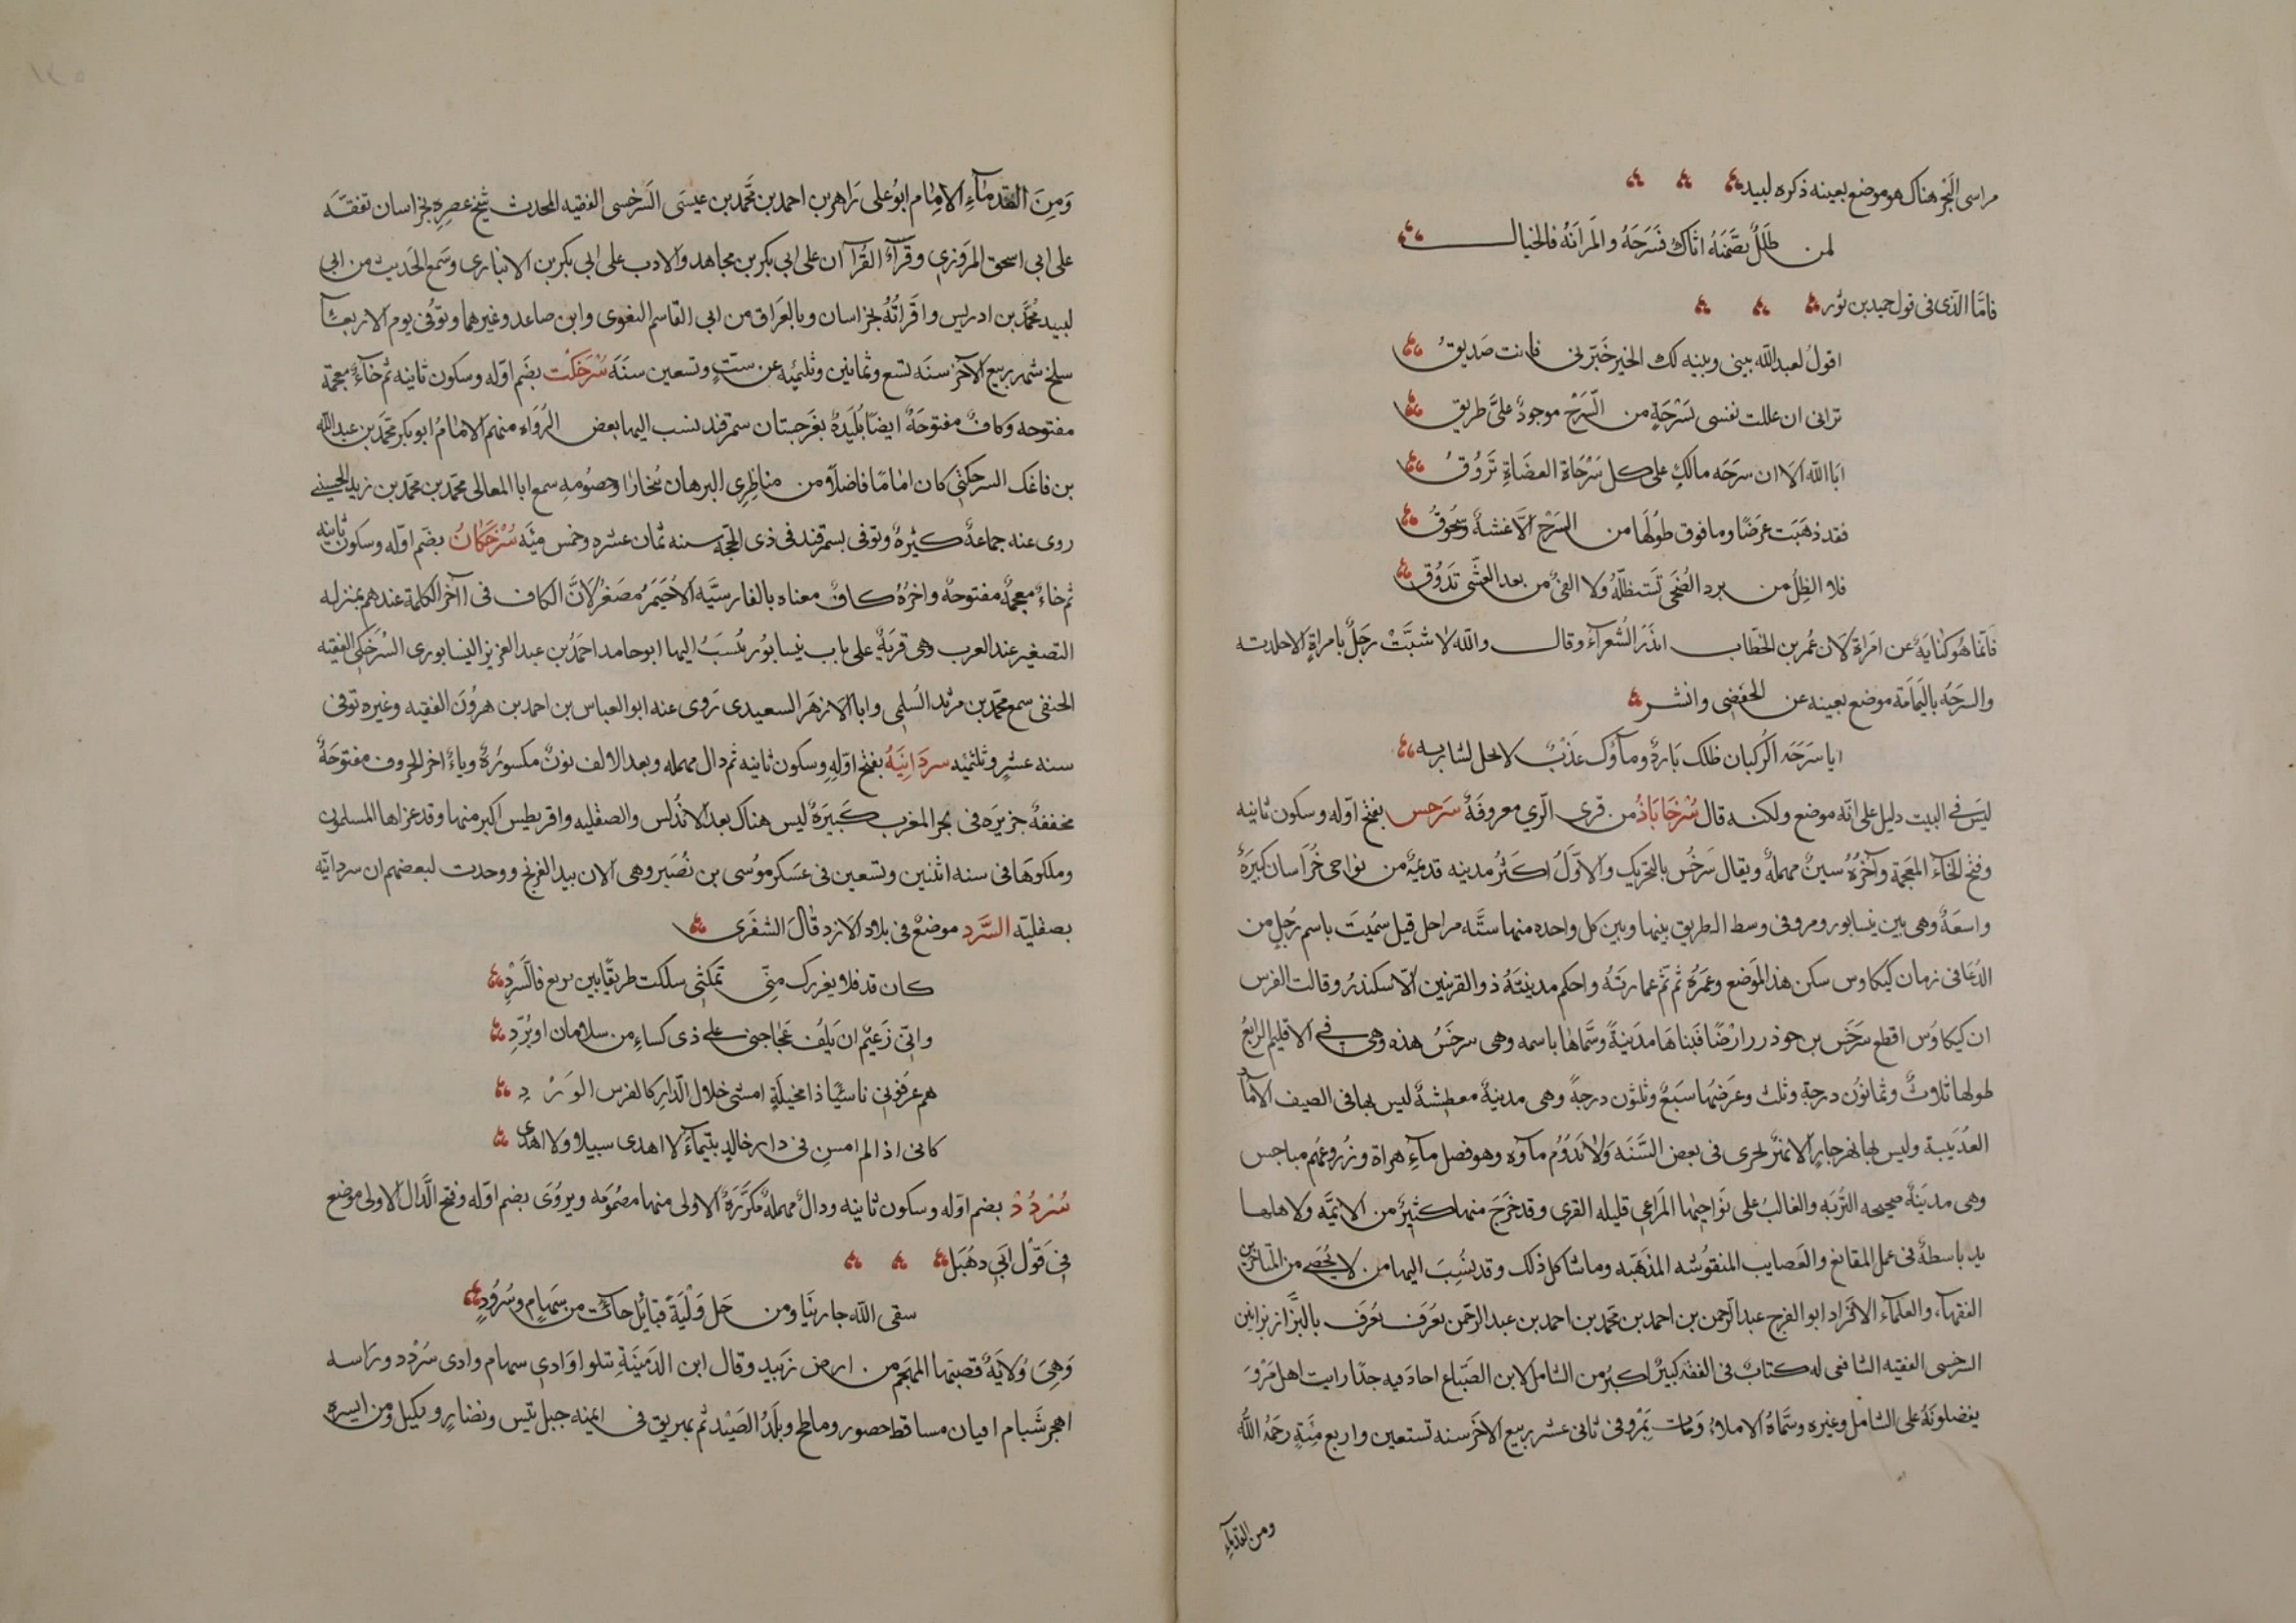 مراسى البحر هناك هو موضع بعينه ذكره لبيد
لمن طلل تضمنه اثاك فَسَرْحَهُ والمَرَانَهُ فالخيال
فامَّا الّذى فى قول حميد بن ثور
اقولُ لعبد اللّه بينى وبينه لك الخير خَبّرنى فانت صَديقُ
ترانى ان عللت نفسى بَسْرحَةٍ من السَّرْحِ موجودٌ علىَّ طريق
ابا اللّه الا ان سرَحَه مالكٍ على كل سَرْحَاة العضَاةِ تَرُوقُ
فقد ذهَبَت عرَضًا وما فوق طُولُها من السَرْح الَّا عَشهٌ وسَحُوقُ
فلا الظِلُ من برد الضُحَى تَستظلّهُ ولا الفئُ من بعد العشّى تَذُوقُ
فانّما هُو كنايةٌ عن امَراة لان عُمر بن الخطّاب انذرَ الشُعرآءَ وقال واللّه لا شبَّبَتْ رَجَلٌ بامراةٍ الا جلدته
والسرحَهُ باليَمامَة موضع بعينه عن الحَفْصِى وانشر
ايا سَرَحَه الرُكبان ظلك بَاردٌ ومآؤك عَذْبٌ لا يحل لشاربه
ليَسَ فى البيت دليل على انّه موضع ولكنه قال سُرْخَابَاذُ من قرى الّرى معروفَةٌ سَرَخس بفتح اوّله وسكون ثانيه
وفتح الخآء المعَجمة وآخرُهُ سينٌ مهملةٌ ويقال سَرَخُس بالتحريك والاوّلَ اكثرُ مدينه قديمةٌ من نواحى خُرَاسان كبيَرَةٌ
واسعَةٌ وهى بين نيسابور ومرو فى وسط الطريق بينها وبين كل واحده منها ستَّه مراحل قيل سمُيَت باسم رجُلٍ من
الدُعَا فى زمان كيكاوس سكن هذا المَوضع وعمَرَهُ ثم تَمَّ عمارتَهُ واحكم مدينتهُ ذو القرنين الاسكندرُ وقالت الفرس
ان كيكاوُس اقطع سَرَخَس بن حوذرر ارْضًا فبَناهَا مدَينةً وسَّماها باسمه وهى سرخَسُ هذه وهى فى الاقليم الرابعُ
طولها ثلاثٌ وثمانوُن درجةٍ وثلث وعَرَضُها سَبَعٌ وثلثون درجةً وهى مدينةٌ معطشةٌ ليس بها فى الصيف الّا ماءُ
العذيبة وليس بها نهر جارٍ الا نهرٌ يجرى فى بعض السَّنَه وَلا نَدُوُم ماؤه وهو فضل مآءِ هراة وزُروعهُم مباخس
وهى مدينَةٌ صحيحه التُربَه والغالبُ على نَواحيهَا المَراعى قليله القرى وقد خَرَجَ منها كثيرٌ من الايمّه ولاهلها
يد باسطهٌ فى عمل المقانع والعَصايب المنقوُشه المذهّبَه وما شاكل ذلك وقد نسُبَ اليها من لا يُحْصَى من المتاخرين
الفقهآء والعلمآء الافْراد ابو الفرج عبد الرّحمن بن احمد بن محمّد بن احمد بن عبد الرحّمن يعُرَف يعُرَف بالبزّاز
السَرخسى الفقيه الشافعى له كتابٌ فى الفقه كبيرٌ اكبرُ من الشامل لابن الصَبّاغ اجادَ فيه جدًّا رايت اهل مَرْوَ
يفضلونَهُ على الشامل وغيره وسَّماهُ الاملاءُ وَمات بَمرْو فى ثانى عشر ربيع الاخَر سنه تستعين واربع مئَةٍ رحَمُه اللّٰه
ومن القدمآءِ
وَمِنَ القدمَآءِ الامَام ابوُ على زَاهر بن احمد بن محَّمد بن عيسَى السَرخسى الفقيه المحدث شيَخ عصرِهِ بخراسان تفقّه
على ابى اسحق المرَوزى وقَرَآءَ القُرآان على ابى بكر بن مجاهد والادب على ابى بكر بن الانبارى وسَمع الحَديث من ابى
لبيد مُحَّمد بن ادريس واقرانهُ بخراسان وبالعَراق من ابى القاسم البغوى وابن صاعد وغيرهما وتوُفى يوم الاربعآء
سلخ شهر ربيع الآخر سنَه تسع وثمانين وثلثمئه عن ستٍ وتسعين سنَةَ سُرْخَكَت بضَم اوّله وسكون ثانيه ثم خآءٌ معجمة
مفتوحه وكافٌ مفتوحَةٌ ايضًا بُلَيدَةٌ بغَرجستان سمرقند نسب اليها بعض الرُواه منهم الامَامُ ابو بكر محّمد بن عبد اللّه
بن فاعَك السرحكتى كان امَامًا فاضلًا من مناظِرِى البرهان بُخَارَا وخصُومهِ سمع ابا المعالى محمّد بن محمّد بن زيد الحُسينى
روى عنه جماعهٌ كثيرهٌ وتوفى بسمرقند فى ذى الحّجَه سنه ثمان عشره وخمس مئَه سُرْخَكانُ بضَم اوّله وسكون ثانيه
ثم خاءٌ معجمةٌ مفتوحهٌ واخرُهُ كافٌ معناه بالفارسيَّه الاحُيَمرُ مصَغرٌ لانَّ الكاف فى اآخر الكلمة عندهم بمنزله
التصغير عند العرب وهى قريَةٌ على باب نيسابوُر ينُسَبُ اليها ابو حامد احمَدُ بن عبد العزيز النيسابورى السُرْخَكى الفقيه
الحنفى سمع محمّد بن مرثد السُلمى وابا الازهَر السعيدى رَوى عنه ابو العباس بن احمد بن هروُن الفقيه وغيره توفى
سنه عشرٍ وثلثمئه سردَانِيَهُ بفتح اوّلِهِ وسكون ثانيه ثم دال مهمله وبعد الالف نونٌ مكسورُةٌ وياءٌ اخر الحروف مفتوحَةٌ
مخففهٌ جزيرَه فى بحر المغرب كَبيَرةٌ ليس هناك بعد الاندُلس والصقليه واقريطيس اكبر منها وقد غزاها المسلمون
وملكوهَا فى سنه اثنين وتسعين فى عَسكر موُسى بن نُصَير وهى الان بيد الفرنج ووحدت لبعضهم ان سردانّيه
بصقليّه السَّردِ موضعٌ فى بلاد الازد قالَ الشنفَرى
كان قد فلا يغررك مِنّى تمكّثى سلكت طريقًا بين يربع فالسَّرْدِ
وانّى زَعيٌم ان يَلُف عَجَاجتى على ذى كساءٍ من سلامان او بُرْدِ
هم عرَفونى ناسيًا ذا مخيلَةٍ امشى خلال الدّار كالفرس الوَرْدِ
كانى اذا لم امسِ فى دار خالدٍ بتيمآءَ لا اهدى سبيلا ولا اهدى
سُرْدُدْ بضم اوّله وسكون ثانيه ودالٌ مهملهٌ مكرَّرَةٌ الاولى منها مضمُومَه ويروُىَ بضم اوّله وفتح الدَّال الاولى موضع
فى قَوْل ابَى دهَبَل
سقى اللّه جارينَا ومن حَل وَلْيَةً قبائل جاءَت من سَهَامٍ وسُرُودٍ
وَهِىَ وَلايَةٌ قصبتها المهجَم من ارض زَبيد وقال ابن الدَمينَةِ يتلوا وَادى سهام وادى سُرْدد وراسه
اهجر شَبام اقيان مساقط حصور وملحٍ وبلَدُ الصَيَد ثم يمريق فى ايمنه جبل تيس ونضارٍ وبكيل ومن ايسره